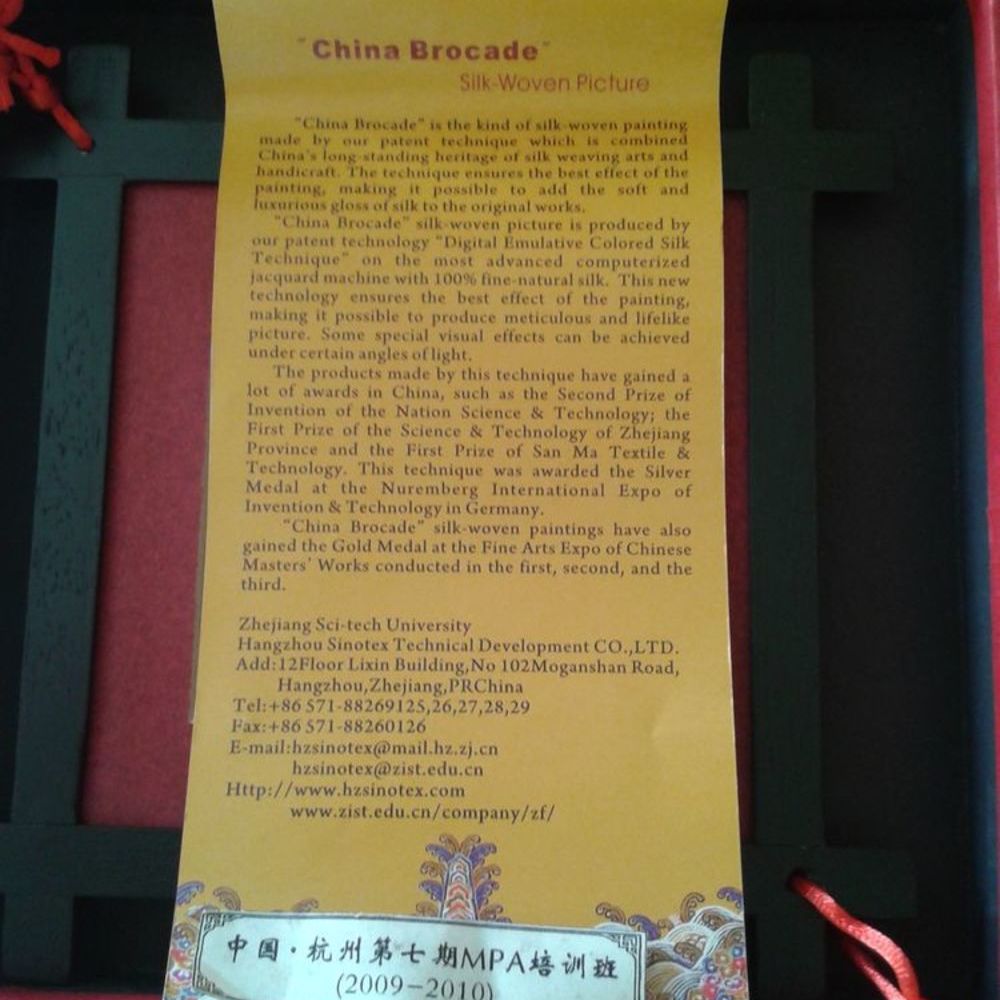 "China Brocade"
Silk-Woven Picture
"China Brocade" is the kind of silk-woven painting
made by our patent technique which is combined
China's long-standing heritage of silk weaving arts and
handicraft. The technique ensures the best effect of the
painting, making it possible to add the soft and
luxurious gloss of silk to the original works.
"China Brocade" silk-woven picture is produced by
our patent technology "Digital Emulative Colored Silk
Technique" on the most advanced computerized
jacquard machine with 100% fine-natural silk. This new
technology ensures the best effect of the painting,
making it possible to produce meticulous and lifelike
picture. Some special visual effects can be achieved
under certain angles of light.
The products made by this technique have gained a
lot of awards in China, such as the Second Prize of
Invention of the Nation Science & Technology; the
First Prize of the Science & Technology of Zhejiang
Province and the First Prize of San Ma Textile &
Technology. This technique was awarded the Silver
Medal at the Nuremberg International Expo of
Invention & Technology in Germany.
"China Brocade" silk-woven paintings have also
gained the Gold Medal at the Fine Arts Expo of Chinese
Masters' Works conducted in the first, second, and the
third.
Zhejiang Sci-tech University
Hangzhou Sinotex Technical Development CO.,LTD.
Add:12Floor Lixin Building,No 102Moganshan Road,
Hangzhou,Zhejiang,PRChina
Tel:+86 571-88269125,26,27,28,29
Fax:+86 571-88260126
E-mail:hzsinotex@mail.hz.zj.cn
hzsinotex@zist.edu.cn
Http://www.hzsinotex.com
www.zist.edu.cn/company/zf/
中国·杭州第七期MPA培训班
(2009-2010)